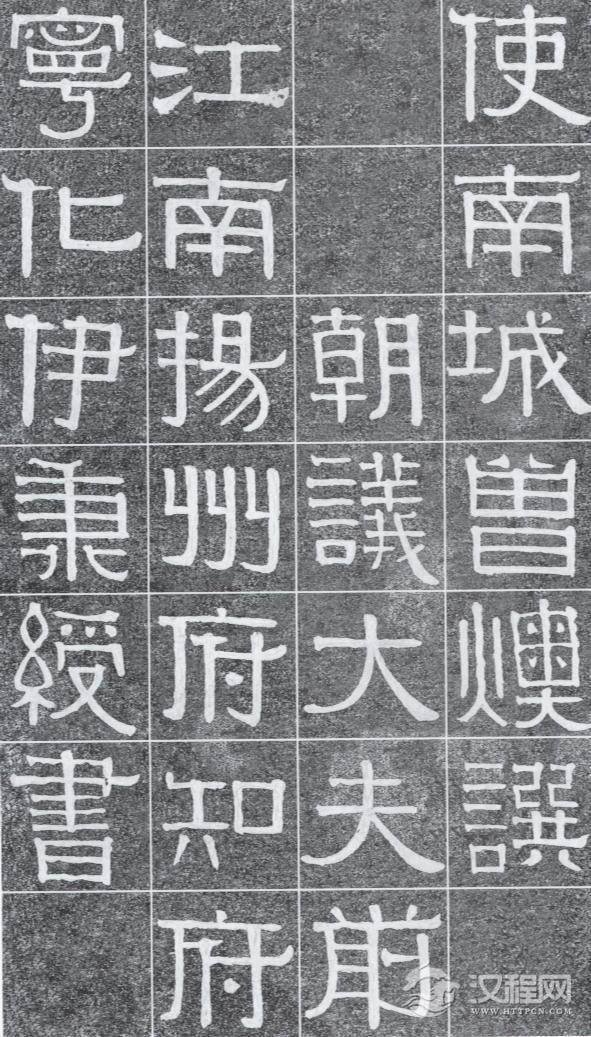 使南城曾燠譔
朝議大夫前
江南揚州府知府
寧化伊秉綬書
汉程网
WWW.HTTPCN.COM